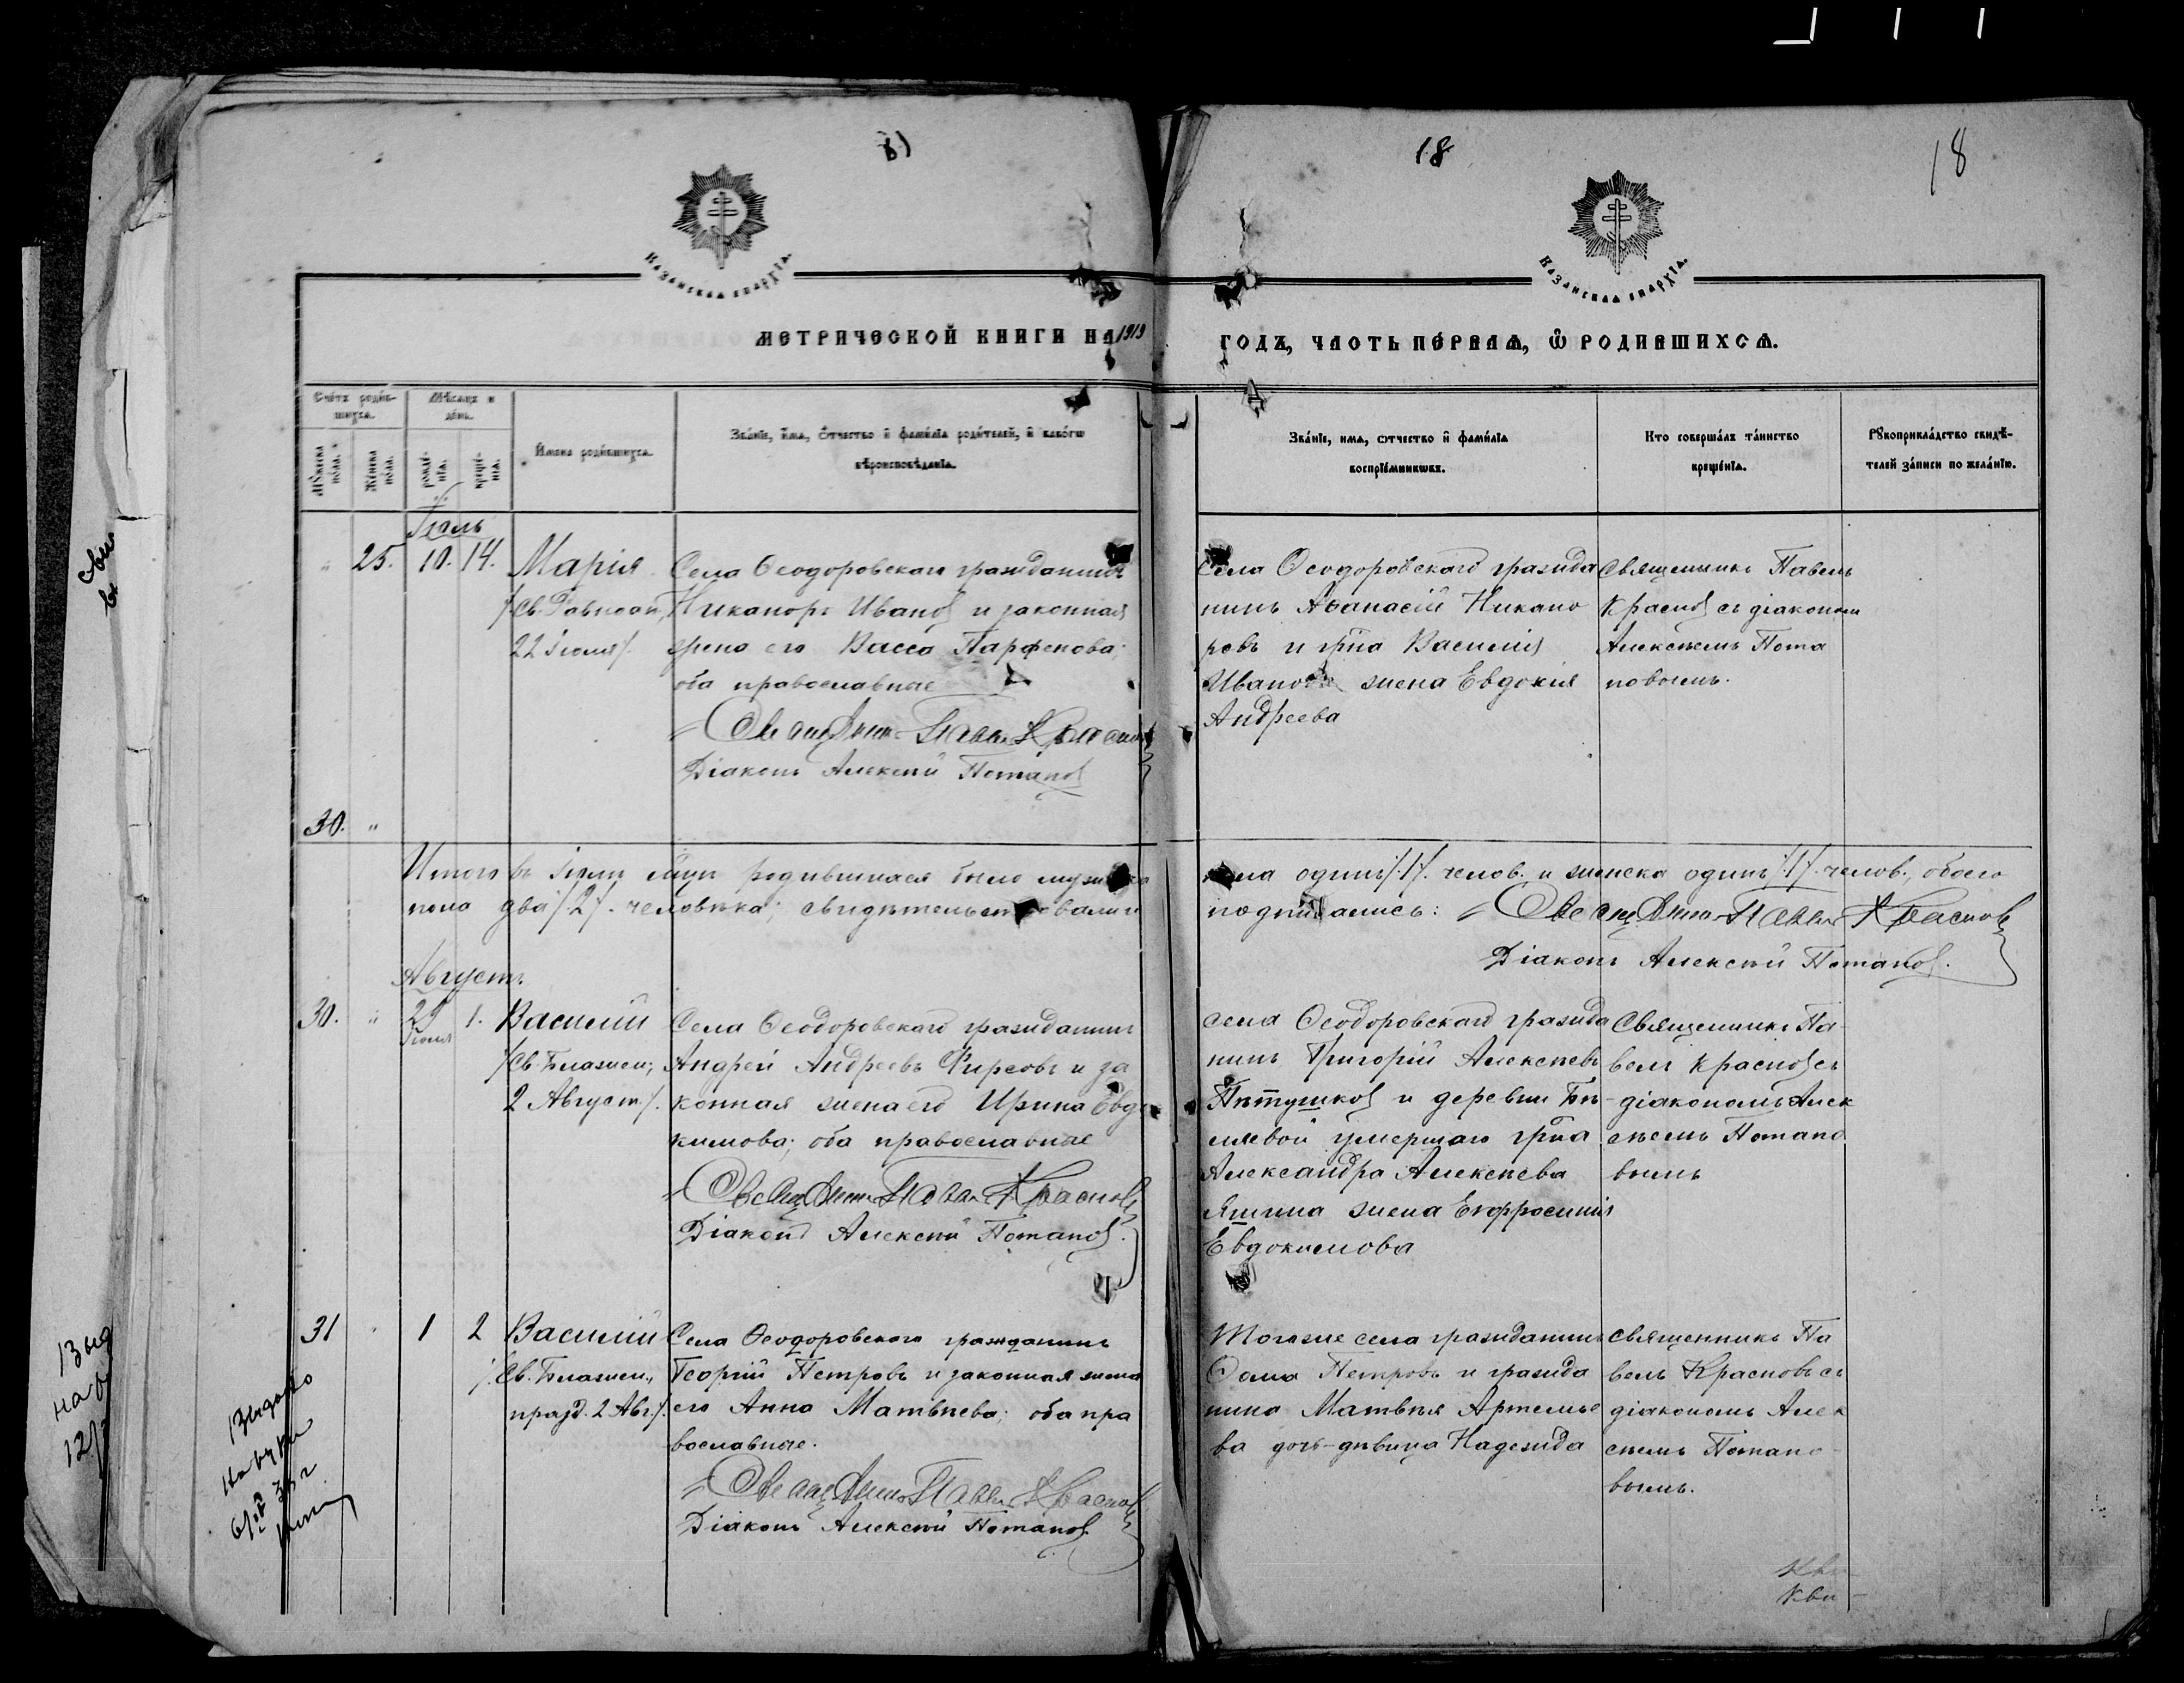 18
18
КАЗАНСКАѦ ЕПАРХІ́Ѧ.
КАЗАНСКАѦ ЕПАРХІ́Ѧ.
МЕТРИЧЕСКОЙ КНИГИ НА 1919
ГОДЪ, ЧАСТЬ ПЕ́РВАѦ, Ѽ РОДИВШИХСѦ.
Сче́тъ роди́в-
шихсѧ.
Мѣ́сѧцъ и
де́нь.
Мꙋ́жеска
по́ла.
Же́нска
по́ла.
рожде́-
нїѧ.
креще́-
нїѧ.
И́мена роди́вшихсѧ.
Зва́нїе, и҆́мѧ, ѻ҆́тчество и҆ фами́лїѧ роди́телей, и҆ како́гѡ
вѣроисповѣ́данїѧ.
Зва́нїе, имѧ, ѻтчество и҆ фами́лїѧ
воспрїе́мникѡвъ.
Кто соверша́лъ та́инство
креще́нїѧ.
Рꙋкоприкла́дство свидѣ́-
телей за́писи по жела́нїю.
Іюль
25. 10. 14. Марія
/Св. Равноап.,
22 Іюля/.
Села Ѳеодоровскаго гражданинъ
Никаноръ Ивановъ и законная
жена его Васса Парфенова;
оба православные
Священникъ Павелъ Красновъ
Діаконъ Алексѣй Потаповъ
Села Ѳеодоровскаго гражда
нинъ Аѳанасій Никано
ровъ и гр-на Василія
Иванова жена Евдокія
Андреева
Священникъ Павелъ
Красновъ съ діакономъ
Алексѣемъ Пота
повымъ.
30. "
Итого въ Іюлѣ м-цѣ родившихся было мужеска
пола одинъ /1/. челов. и женска одинъ /1/. челов., обоего
пола два /2/. человѣка; свидѣтельствовали и
подписались: Священникъ Павелъ Красновъ
Діаконъ Алексѣй Потаповъ.
Августъ.
30. " 29 Іюля 1. Василій
/Св. Блажен.,
2 Август./.
Села Ѳеодоровскаго гражданинъ
Андрей Андреевъ Фирсовъ и за
конная жена его Ирина Евдо
кимова; оба православные
Священникъ Павелъ Красновъ
Діаконъ Алексѣй Потаповъ.
села Ѳеодоровскаго гражда
нинъ Григорій Алексѣевъ
Пѣтушковъ и деревни Бѣ-
ляевой умершаго гр-на
Александра Алексѣева
Яшина жена Евфросинія
Евдокимова
Священникъ Па-
велъ Красновъ съ
діакономъ Алек
сѣемъ Потапо
вымъ
31 1 2 Василій
/Св. Блажен.,
празд. 2 Авг./.
Села Ѳеодоровскаго гражданинъ
Георгій Петровъ и законная жена
его Анна Матвѣева; оба пра
вославные.
Священникъ Павелъ Красновъ
Діаконъ Алексѣй Потаповъ.
Тогоже села гражданинъ
Ѳома Петровъ и гражда
нина Матвѣя Артемье
ва дочь-дѣвица Надежда
Священникъ Па
велъ Красновъ съ
діакономъ Алек
сѣемъ Потапо-
вымъ.